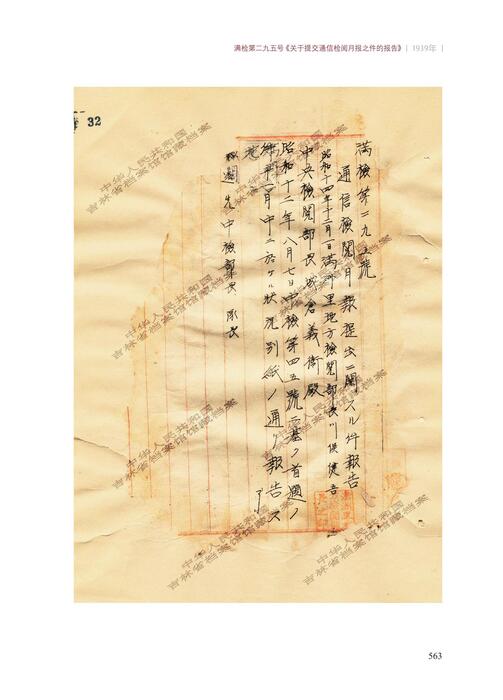 满检第二九五号《关于提交通信检阅月报之件的报告》 | 1939年 |
32
滿檢第二九五號
通信檢閱月報提出ニ關スル件報告
昭和十四年十二月一日滿洲里地方檢閱部長川俣健吾
中央檢閱部長城倉義衛殿
昭和十二年八月七日中檢第四五號ニ基ク首題ノ
月中ニ於ケル狀況別紙ノ通リ報告ス
了
先 中檢部長 隊長
中华人民共和国
吉林省档案馆馆藏档案
中华人民共和国
吉林省档案馆馆藏档案
中华人民共和国
吉林省档案馆馆藏档案
中华人民共和国
吉林省档案馆馆藏档案
563